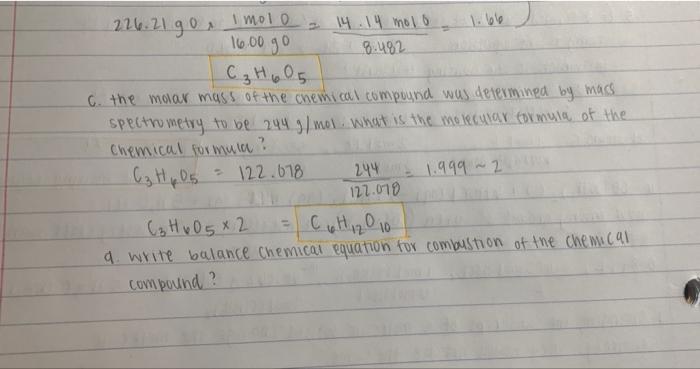 226.21 g O x 1 mol O / 16.00 g O = 14.14 mol O / 8.482 = 1.66
C3H6O5
c. the molar mass of the chemical compound was determined by mass
spectrometry to be 244 g/mol. What is the molecular formula of the
chemical formula?
C3H6O5 = 122.078 244 / 122.078 = 1.999 ~ 2
C3H6O5 x 2 = C6H12O10
d. write balance chemical equation for combustion of the chemical
compound?